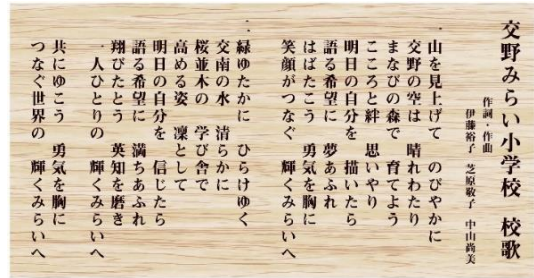 交野みらい小学校 校歌
作詞・作曲
伊藤裕子 芝原敬子 中山尚美
一.山を見上げて のびやかに
交野の空は 晴れわたり
まなびの森で 育てよう
こころと絆 思いやり
明日の自分を 描いたら
語る希望に 夢あふれ
はばたこう 勇気を胸に
笑顔がつなぐ 輝くみらいへ
二.緑ゆたかに ひらけゆく
交南の水 清らかに
桜並木の 学び舎で
高める姿 凜として
明日の自分を 信じたら
語る希望に 満ちあふれ
翔びたとう 英知を磨き
一人ひとりの 輝くみらいへ
共にゆこう 勇気を胸に
つなぐ世界の 輝くみらいへ